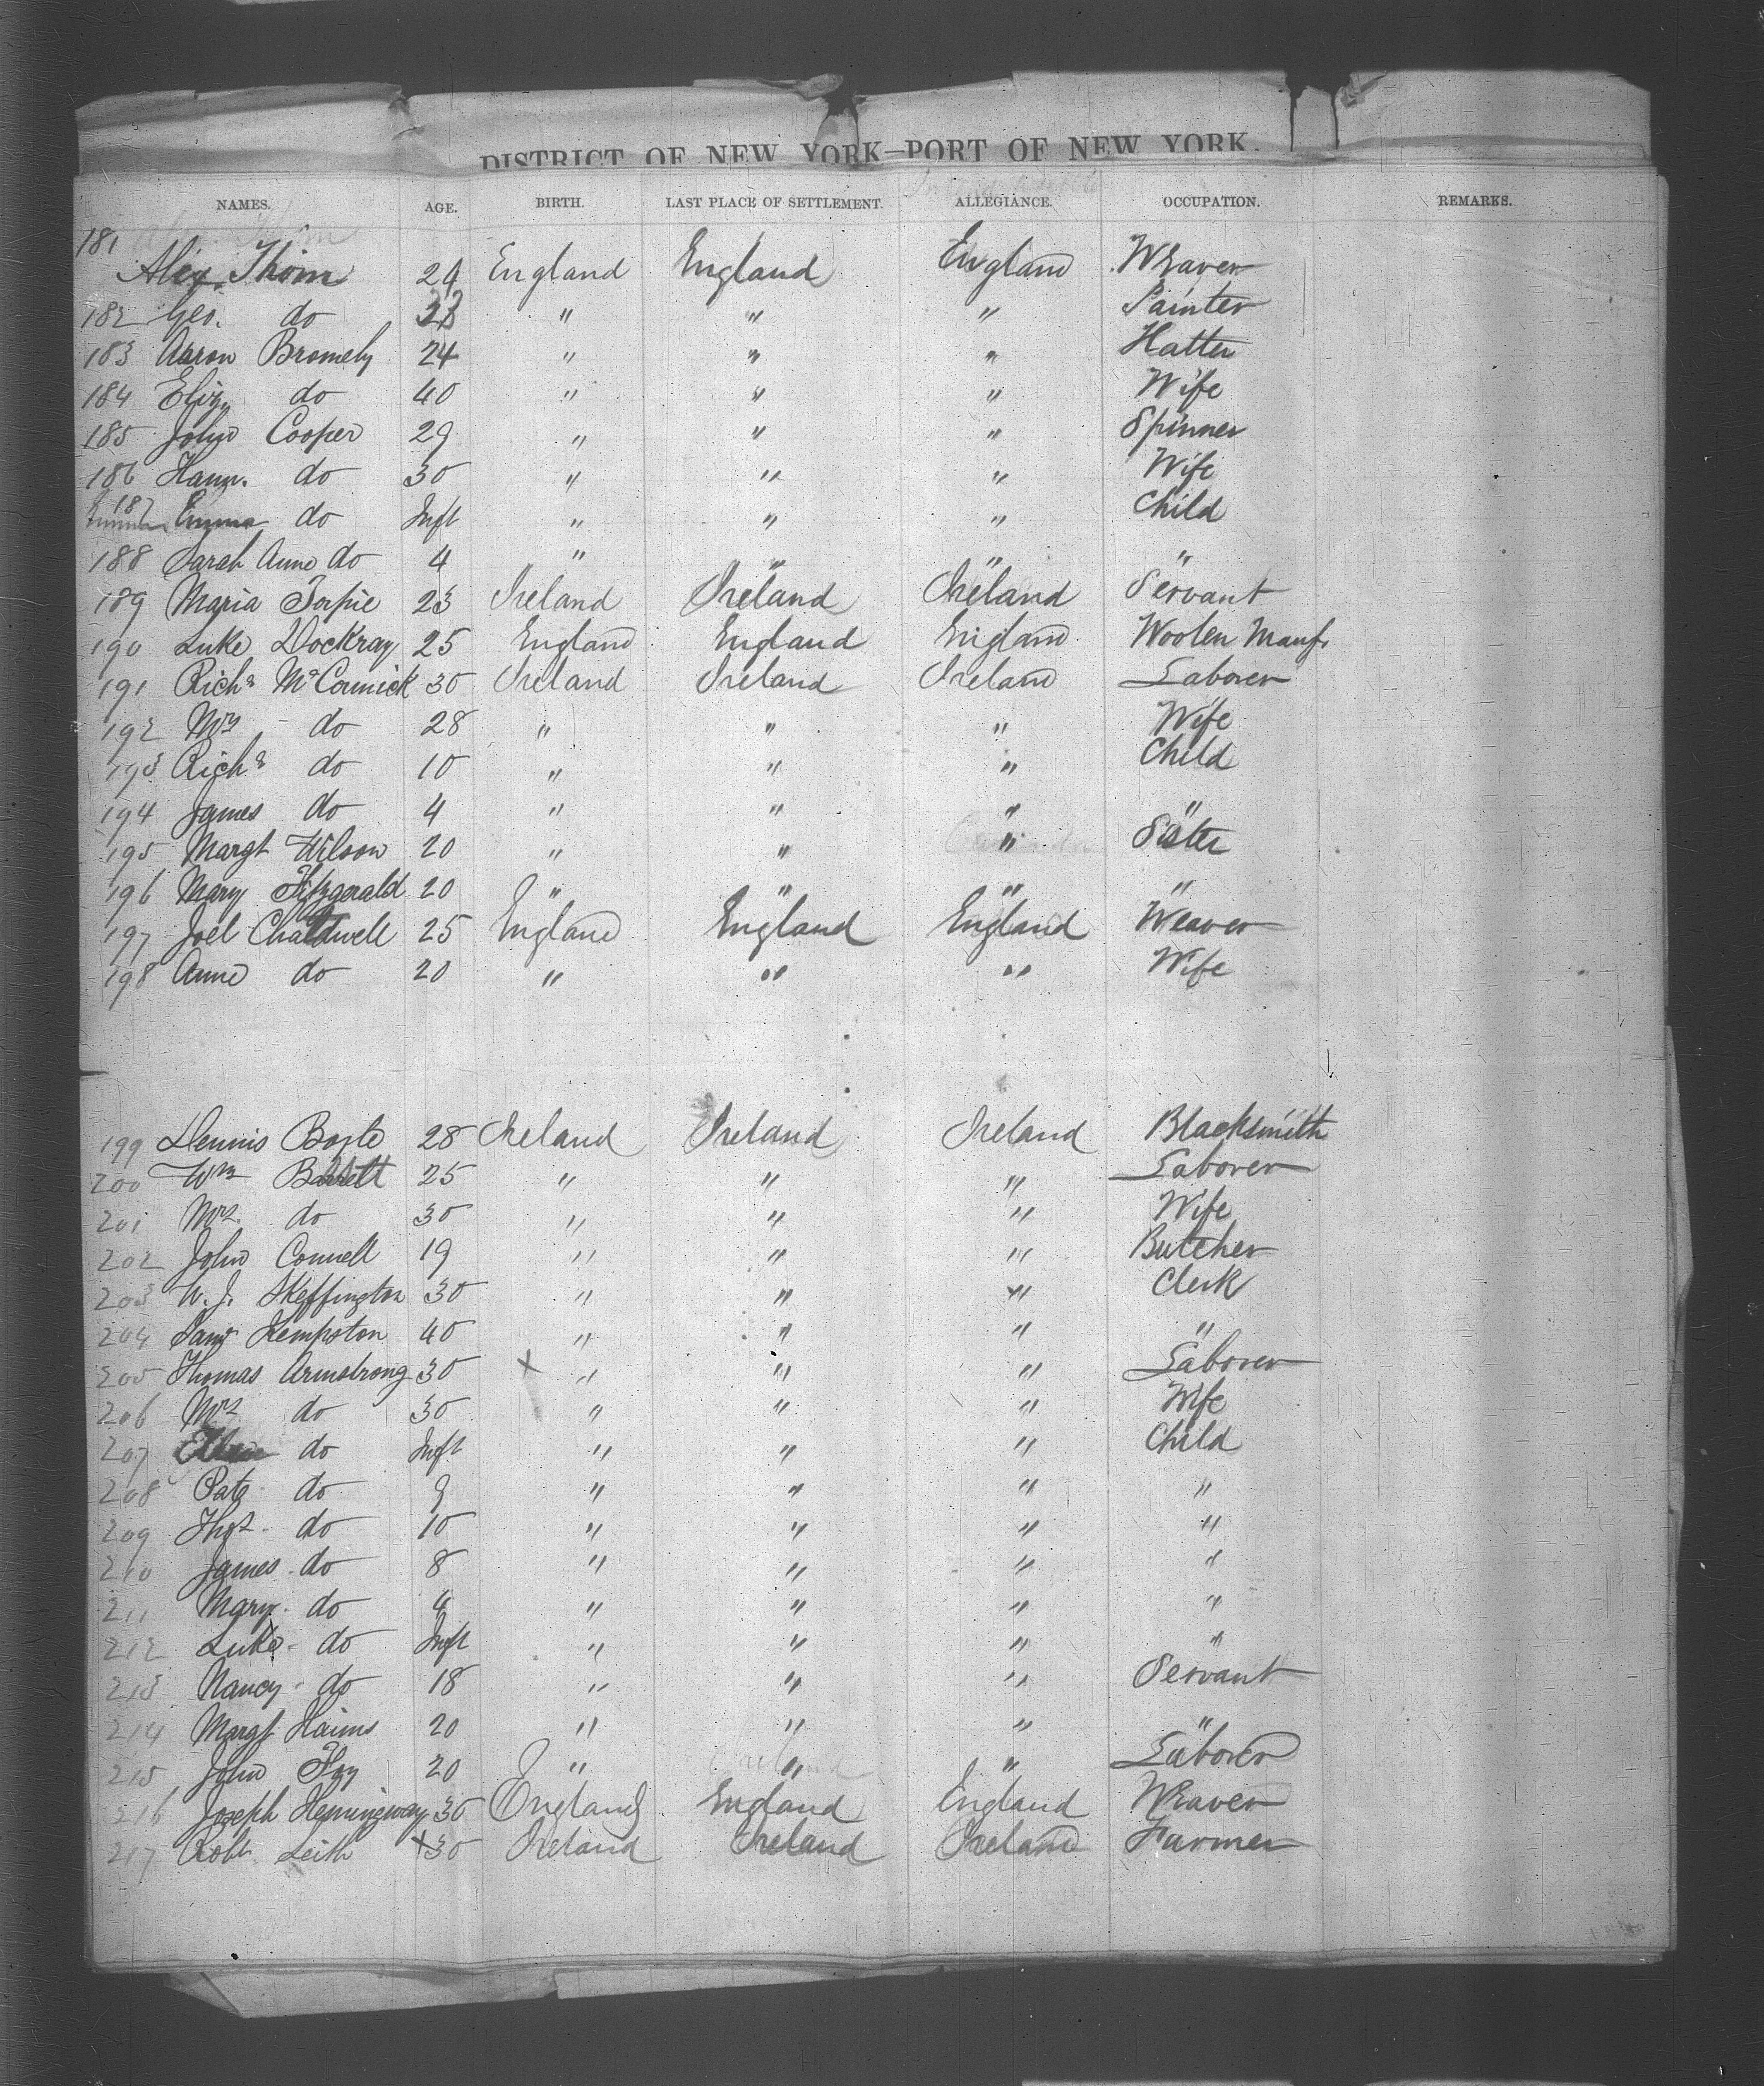 DISTRICT OF NEW YORK—PORT OF NEW YORK.
NAMES. AGE. BIRTH. LAST PLACE OF SETTLEMENT. ALLEGIANCE. OCCUPATION. REMARKS.
181 Alex. Thom 24 England England England Weaver
182 Geo. do 23 " " " Painter
183 Aaron Bromely 24 " " " Hatter
184 Eliz. do 40 " " " Wife
185 John Cooper 29 " " " Spinner
186 Hann. do 30 " " " Wife
187 Emma do Inft " " " Child
188 Sarah Anne do 4 " " " "
189 Maria Torpie 23 Ireland Ireland Ireland Servant
190 Luke Dockray 25 England England England Woolen Manf.
191 Richd McCormick 30 Ireland Ireland Ireland Laborer
192 Mrs do 28 " " " Wife
193 Richd do 10 " " " Child
194 James do 4 " " " "
195 Margt Wilson 20 " " " Sister
196 Mary Fitzgerald 20 " " " "
197 Joel Chaldwell 25 England England England Weaver
198 Anne do 20 " " " Wife
199 Dennis Boyle 28 Ireland Ireland Ireland Blacksmith
200 Wm 25 " " " Laborer
201 Mrs. do 30 " " " Wife
202 John Connell 19 " " " Butcher
203 W. J. Skeffington 30 " " " Clerk
204 Saml Hempston 40 " " " "
205 Thomas Armstrong 30 x " " " Laborer
206 Mrs do 30 " " " Wife
207 do Inft " " " Child
208 Patk do 9 " " " "
209 Thos. do 10 " " " "
210 James do 8 " " " "
211 Mary do 4 " " " "
212 Luke do Inft " " " "
213 Nancy do 18 " " " Servant
214 Margt Haims 20 " " " "
215 John Foy 20 " " " Laborer
216 Joseph Hemingway 30 England England England Weaver
217 Robt Leith x 30 Ireland Ireland Ireland Farmer